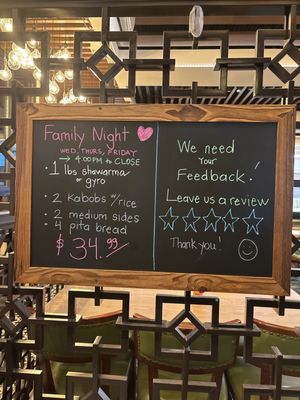 Family Night
WED, THURS, FRIDAY
→ 4:00 PM to CLOSE
· 1 lbs shawarma
or
gyro
· 2 kabobs w/rice
· 2 medium sides
· 4 pita bread
$34.99/
We need
Your
Feedback!
Leave us a review
Thank you!